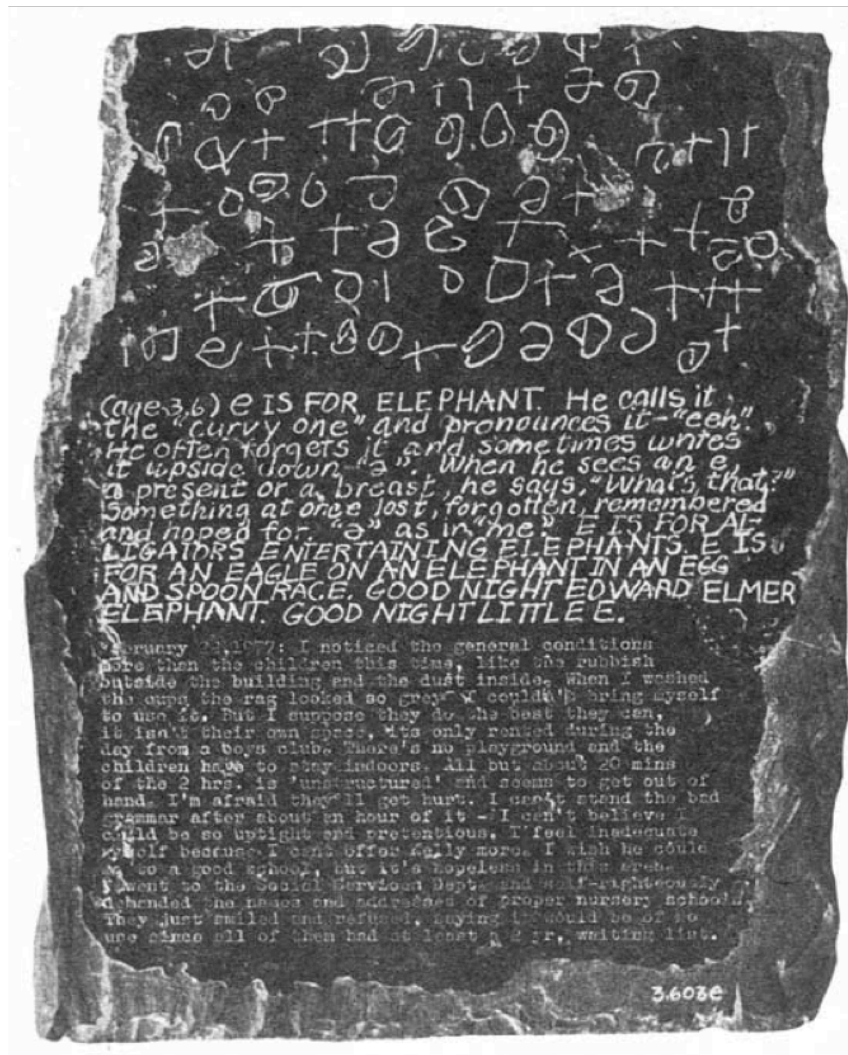 (age 3.6) e IS FOR ELEPHANT. He calls it
the "curvy one" and pronounces it-"eeh".
He often forgets it and sometimes writes
it upside down-"ə". When he sees an e,
a present or a breast, he says, "What's that?"
Something at once lost, forgotten, remembered
and hoped for. "ə" as in "me". E IS FOR AL-
LIGATORS ENTERTAINING ELEPHANTS. E IS
FOR AN EAGLE ON AN ELEPHANT IN AN EGG
AND SPOON RACE. GOOD NIGHT EDWARD ELMER
ELEPHANT. GOOD NIGHT LITTLE E.
February 1977: I noticed the general conditions
more than the children this time, like the rubbish
outside the building and the dust inside. When I washed
the cups the rag looked so grey I couldn't bring myself
to use it. But I suppose they do the best they can,
it isn't their own space, its only rented during the
day from a boys club. There's no playground and the
children have to stay indoors. All but about 20 mins
of the 2 hrs. is 'unstructured' and seems to get out of
hand. I'm afraid they'll get hurt. I can't stand the bad
grammar after about an hour of it - I can't believe I
could be so uptight and pretentious. I feel inadequate
myself because I cant offer Kelly more. I wish he could
go to a good school, but it's hopeless in this area.
I went to the Social Services Dept. and self-righteously
demanded the names and addresses of proper nursery schools.
They just smiled and refused, saying it would be of no
use since all of them had at least a 2 yr. waiting list.
3.603e